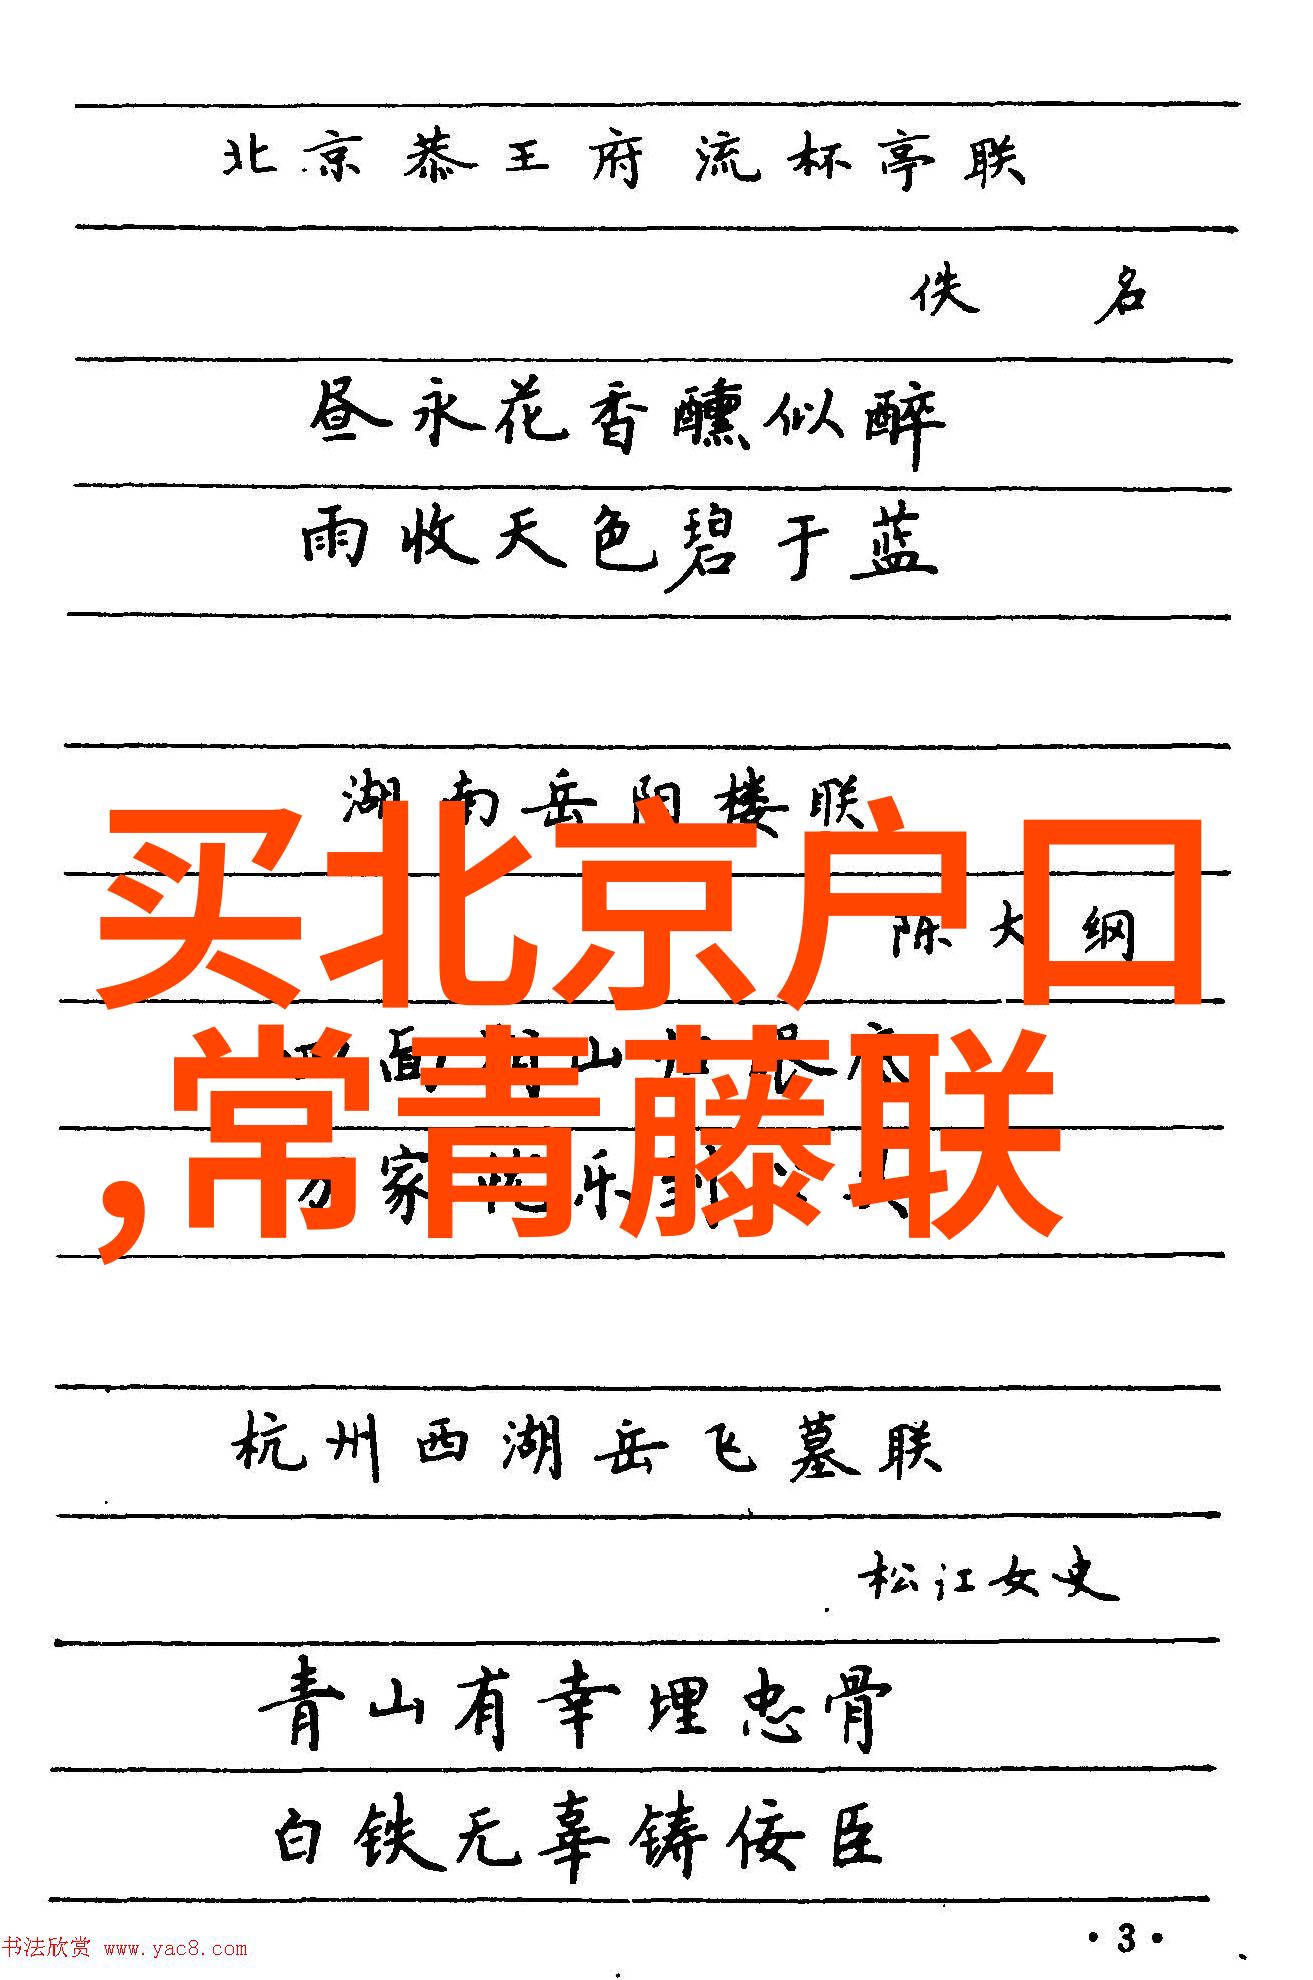 北京恭王府流杯亭联
佚名
昼永花香醺似醉
雨收天色碧于蓝
湖南岳阳楼联
买北京户口
陈大纲
,常青藤联
家 乐
杭州西湖岳飞墓联
松江女史
青山有幸埋忠骨
白铁无辜铸佞臣
·3·
书法欣赏 www.yac8.com